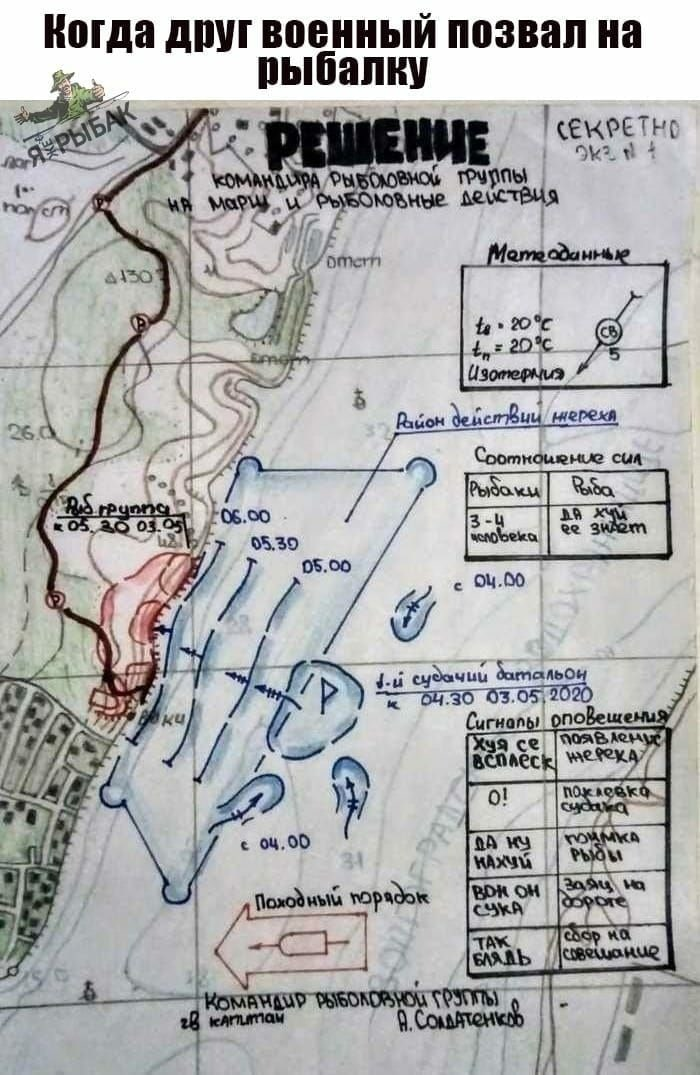 Когда друг военный позвал на
рыбалку
Я НЕ РЫБАК
РЕШЕНИЕ
СЕКРЕТНО
ЭКЗ № 1
КОМАНДИРА РЫБОЛОВНОЙ ГРУППЫ
НА МАРШ И РЫБОЛОВНЫЕ ДЕЙСТВИЯ
Отст
130
Метеоданные
tв = 20°C
tп = 20°C
Изотермия
СВ
5
Район действий жереха
26.0
Соотношение сил
Рыбаки
Рыба
3-4 человека
ДА ХУЙ ЕЕ ЗНАЕТ
Рыб группа
к 05.30 03.05
06.00
05.30
05.00
с 04.00
Р
1-й судачий батальон
к 04.30 03.05 2020
Сигналы оповещения
ХУЯ СЕ ВСПЛЕСК
ПОЯВЛЕНИЕ ЖЕРЕХА
О!
ПОКЛЕВКА СУДАКА
ДА НУ НАХУЙ
ПОИМКА РЫБЫ
ВОН ОН СУКА
Заяц на дороге
ТАК БЛЯДЬ
сбор на совещание
с 04.00
31
Походный порядок
КОМАНДИР РЫБОЛОВНОЙ ГРУППЫ
гв капитан
А. СОЛДАТЕНКОВ